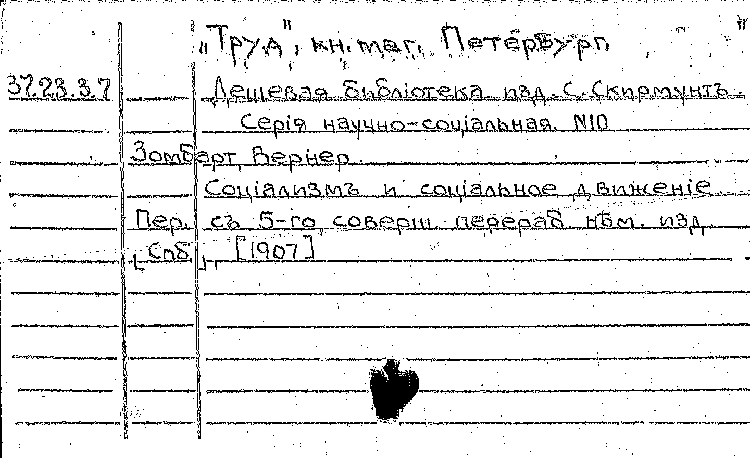 „Труд", кн. маг. Петербург.
37.23.3.7 Дешевая библіотека изд. С. Скирмунтъ.
Серія научно-соціальная. N10
Зомбарт, Вернер
Соціализмъ и соціальное движеніе
Пер. съ 5-го соверш. перераб. нѣм. изд.
[Спб.], [1907]